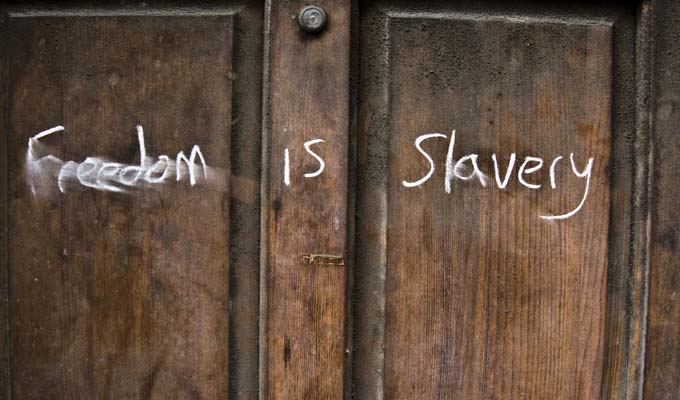 Freedom is Slavery